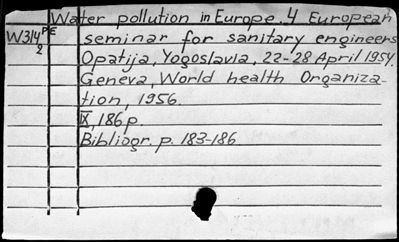 Water pollution in Europe. 4 European
W314 PE
2
seminar for sanitary engineers
Opatija, Yogoslavia, 22-28 April 1954.
Geneva, World health Organiza-
tion, 1956.
IX, 186 p.
Bibliogr. p. 183-186